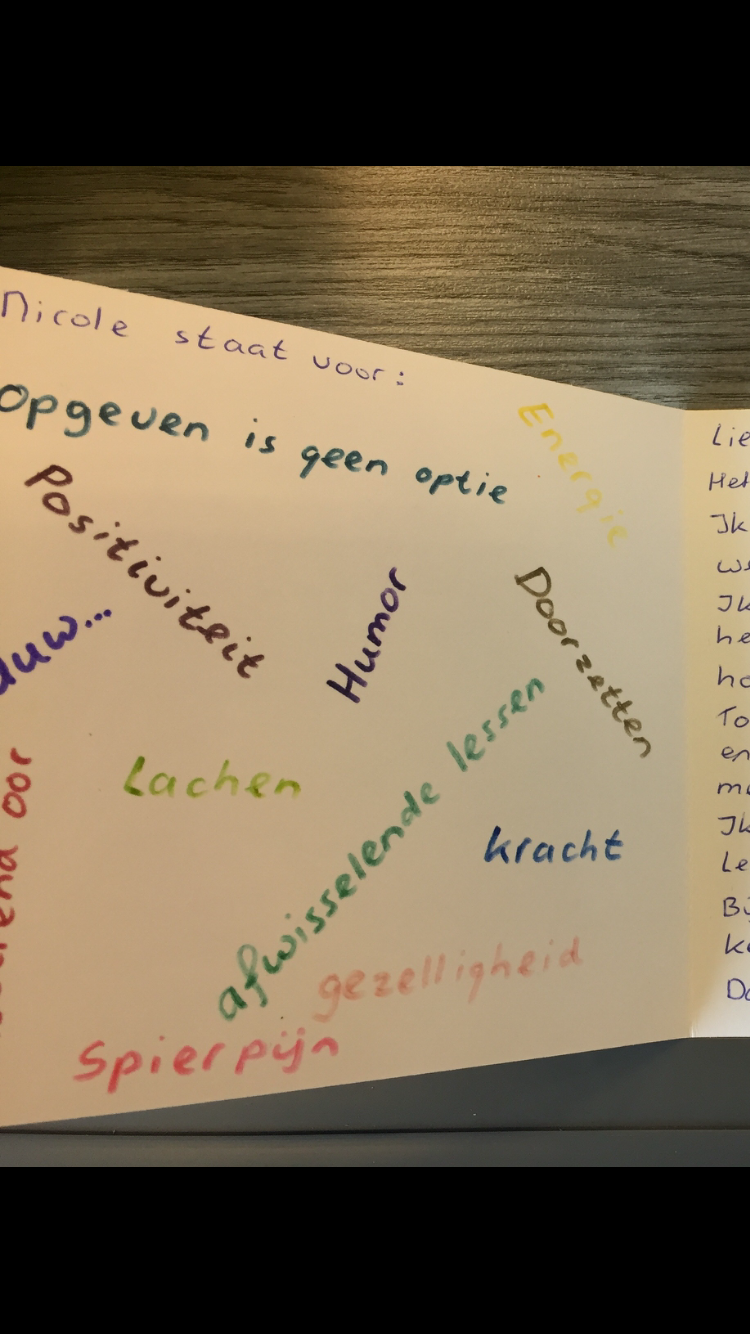 Nicole staat voor:
Opgeven is geen optie
Energie
Positiviteit
Humor
Doorzetten
Lachen
afwisselende lessen
kracht
gezelligheid
Spierpijn
oor
Het
Ik
Ik
en
Ik